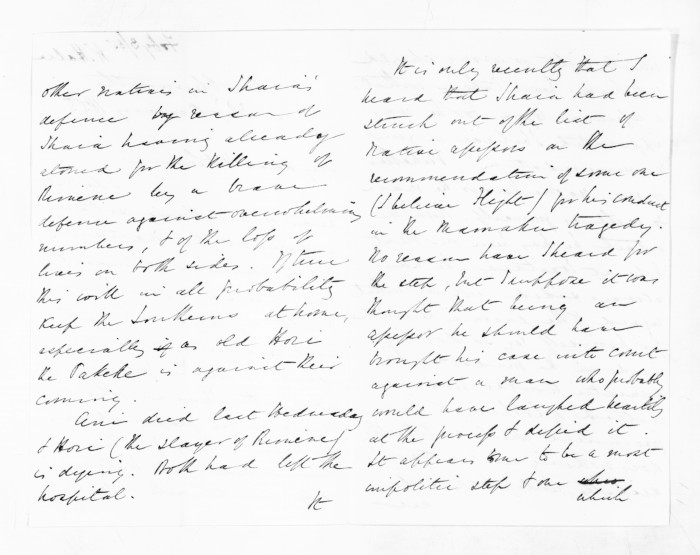 other natives in Ihaia's
defence by reason of
Ihaia having already
atoned for the killing of
Rimene by a brave
defence against overwhelming
numbers, & of the loss of
lives on both sides. If true
this will in all probability
keep the Southerns at home,
especially if as old Hori
te Pakeke is against their
coming.
Ani died last Wednesday
& Hori (the slayer of Rimene)
is dying. Both had left the
hospital.
It
It is only recently that I
heard that Ihaia had been
struck out of the list of
native assessors on the
recommendation of some one
(I believe Flight) for his conduct
in the Mamaku tragedy.
No reason have I heard for
the step, but I suppose it was
thought that being an
assessor he should have
brought his case into court
against a man who probably
would have laughed heartily
at the process & defied it.
It appears to me to be a most
impolitic step & one who
which